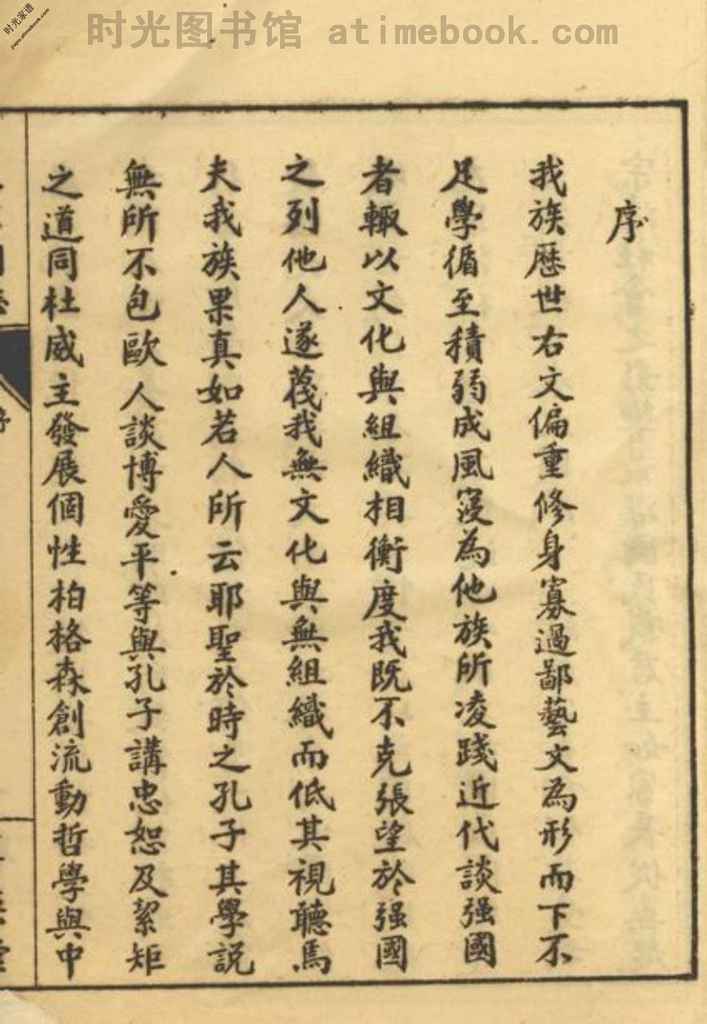 时光图书馆 atimebook.com
时光家谱
序
我族歷世右文偏重修身寡過鄙藝文為形而下不
足學循至積弱成風寖為他族所凌踐近代談强國
者輙以文化與組織相衡度我既不克張望於强國
之列他人遂蔑我無文化與無組織而低其視聽焉
夫我族果真如若人所云耶聖於時之孔子其學説
無所不包歐人談博愛平等與孔子講忠恕及絜矩
之道同杜威主發展個性柏格森創流動哲學與中